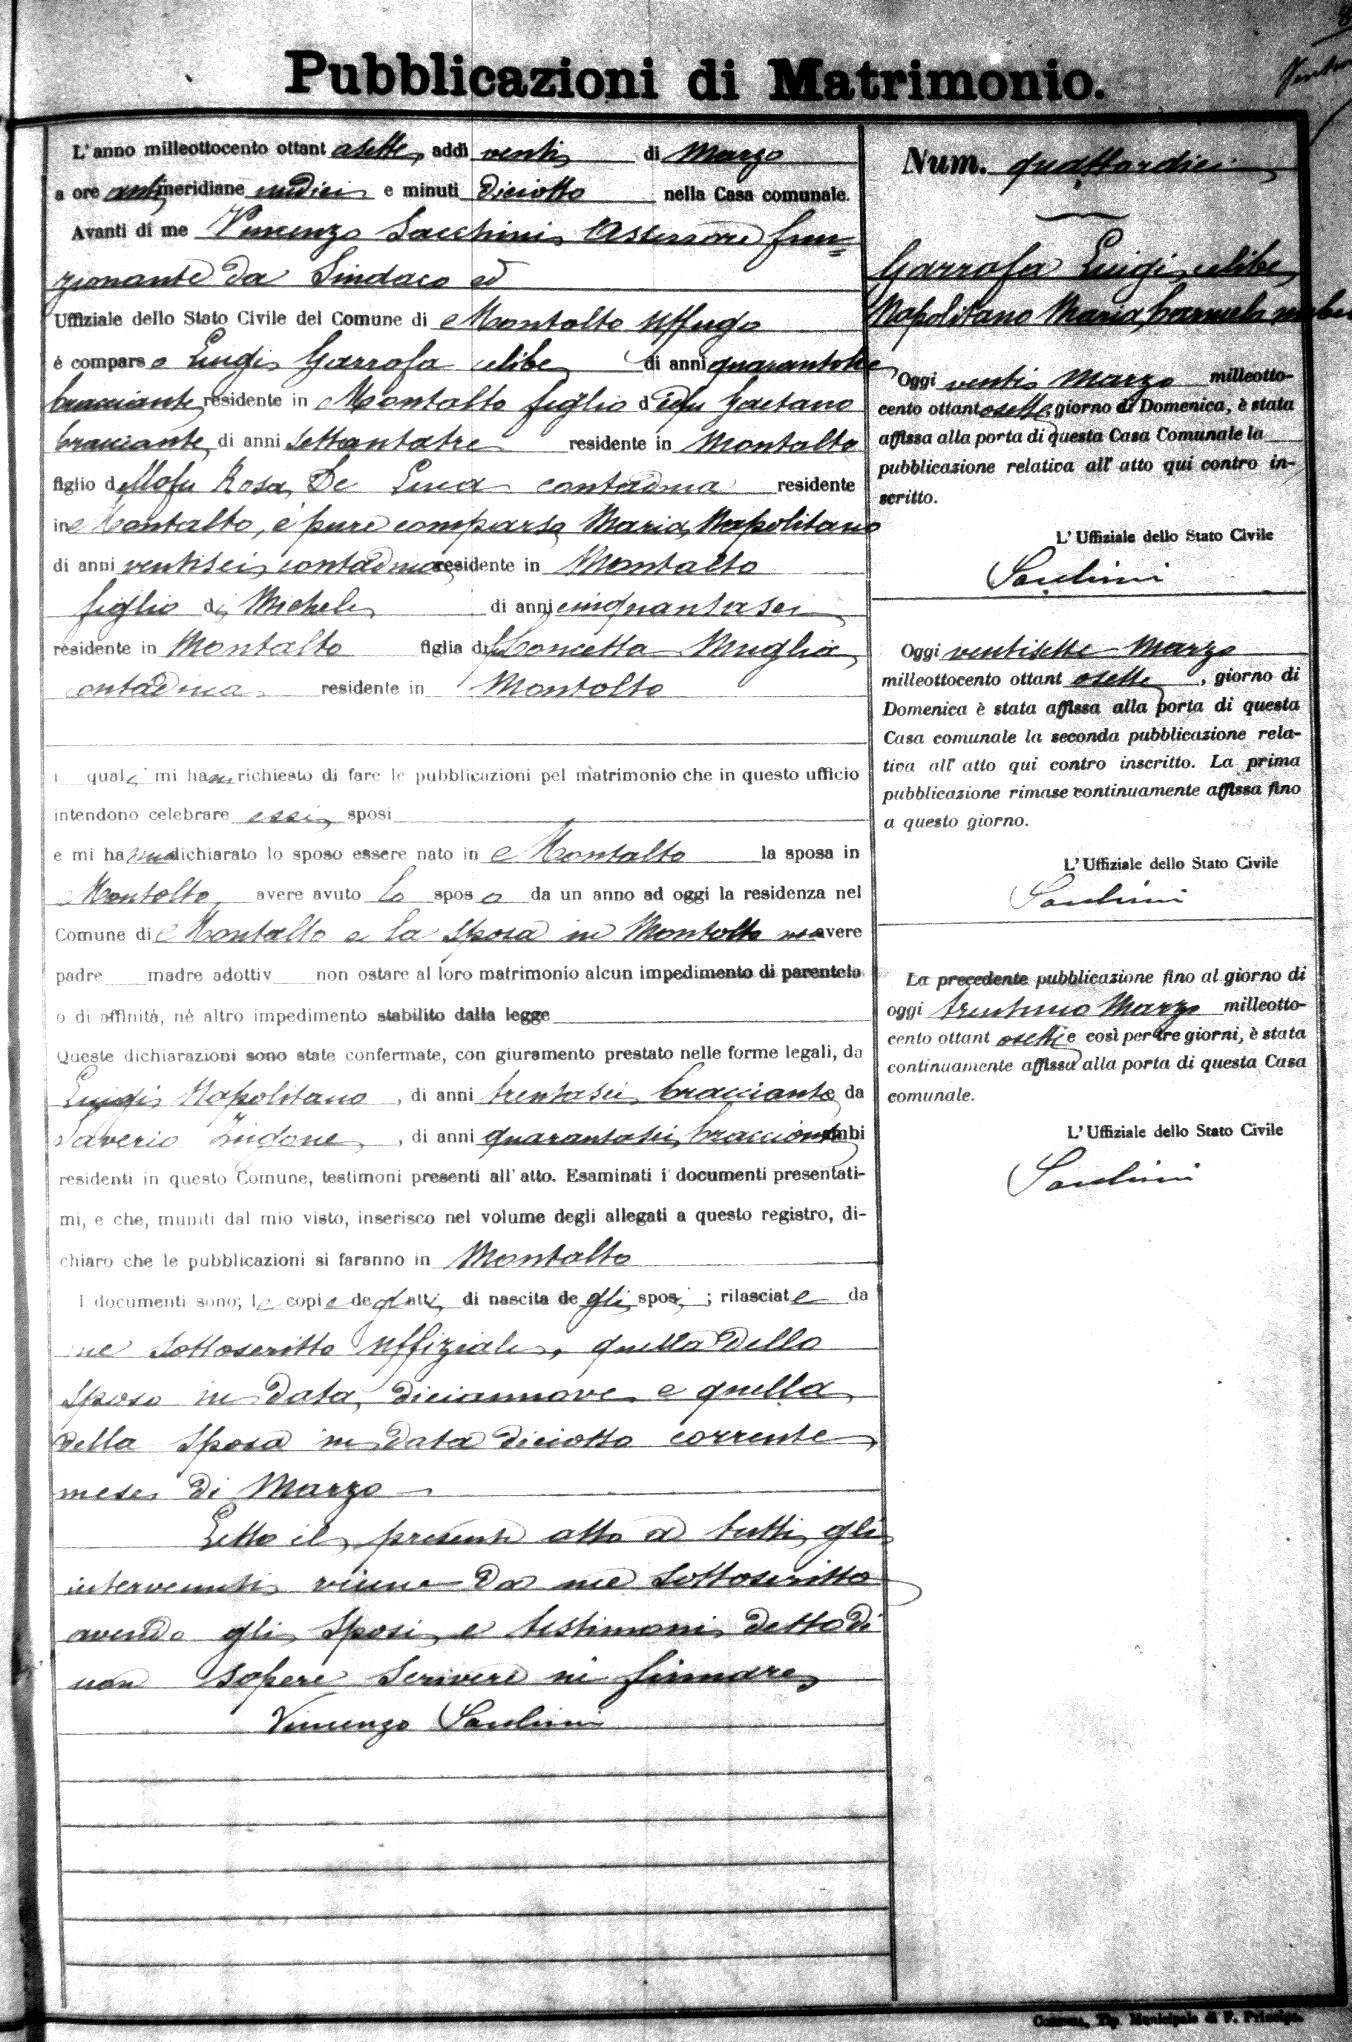 Pubblicazioni di Matrimonio.
L'anno milleottocento ottant asette, addì venti di Marzo
a ore antimeridiane undici e minuti diciotto nella Casa comunale.
Avanti di me Vincenzo Sacchini Assessore fun=
zionante da Sindaco ed
Uffiziale dello Stato Civile del Comune di Montalto Uffugo
è compars o Luigi Garrofa celibe di anni quarantotto
bracciante residente in Montalto figlio d el fu Gaetano
bracciante, di anni settantatre residente in Montalto
figlio d ella fu Rosa De Luca contadina residente
in Montalto, è pure comparsa Maria Napolitano
di anni ventisei, contadina residente in Montalto
figlia di Michele di anni cinquantasei
residente in Montalto figlia di Concetta Muglia
contadina residente in Montalto
i quali mi hanno richiesto di fare le pubblicazioni pel matrimonio che in questo ufficio
intendono celebrare essi sposi
e mi hanno dichiarato lo sposo essere nato in Montalto la sposa in
Montalto, avere avuto lo spos o da un anno ad oggi la residenza nel
Comune di Montalto e la sposa in Montalto non avere
padre madre adottiv non ostare al loro matrimonio alcun impedimento di parentela
o di affinità, nè altro impedimento stabilito dalla legge
Queste dichiarazioni sono state confermate, con giuramento prestato nelle forme legali, da
Luigi Napolitano, di anni trentasei, bracciante e da
Saverio, di anni quarantasei, bracciante ambi
residenti in questo Comune, testimoni presenti all'atto. Esaminati i documenti presentati-
mi, e che, muniti dal mio visto, inserisco nel volume degli allegati a questo registro, di-
chiaro che le pubblicazioni si faranno in Montalto
I documenti sono; le copie degli atti di nascita degli sposi; rilasciate da
me sottoscritto Uffiziale, quella dello
sposo in data diciannove e quella
della sposa in data diciotto corrente
mese di Marzo
Letto il presente atto a tutti gli
intervenuti viene da me sottoscritto
avendo gli sposi e testimoni detto di
non sapere scrivere nè firmare
Vincenzo Sacchini
Num. quattordici
Garrofa Luigi, celibe
Napolitano Maria Carmela nubile
Oggi venti Marzo milleotto-
cento ottantasette giorno di Domenica, è stata
affissa alla porta di questa Casa Comunale la
pubblicazione relativa all'atto qui contro in-
scritto.
L'Uffiziale dello Stato Civile
Sacchini
Oggi ventisette Marzo
milleottocento ottant asette, giorno di
Domenica è stata affissa alla porta di questa
Casa comunale la seconda pubblicazione rela-
tiva all'atto qui contro inscritto. La prima
pubblicazione rimase continuamente affissa fino
a questo giorno.
L'Uffiziale dello Stato Civile
Sacchini
La precedente pubblicazione fino al giorno di
oggi trentuno Marzo milleotto-
cento ottant asette e così per tre giorni, è stata
continuamente affissa alla porta di questa Casa
comunale.
L'Uffiziale dello Stato Civile
Sacchini
Cosenza, Tip. Municipale di F. Principe.